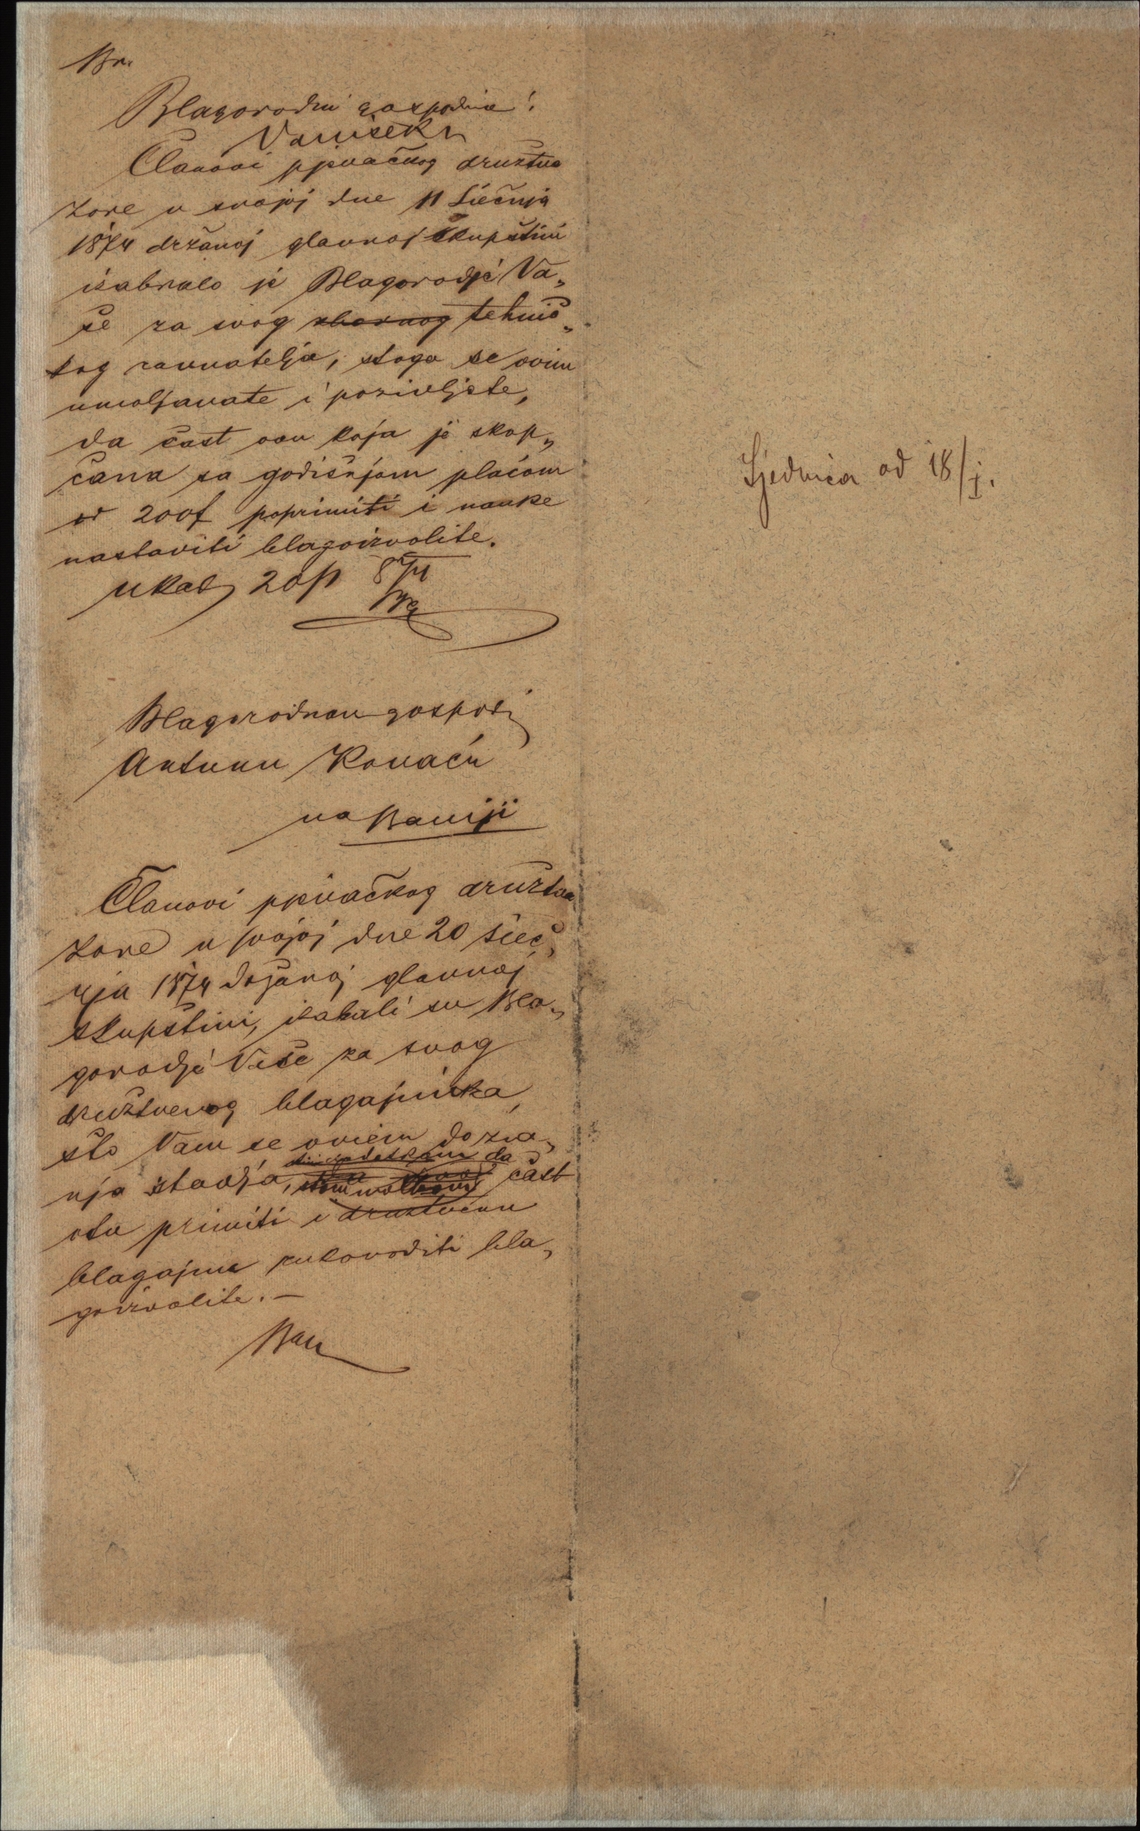 Br.
Blagorodni gospodine!
Clanovi pjevačkog družtva
Zore u svojoj dne 11 Siečnja
1874 držanoj glavnoj Skupštini
izabralo je Blagorodje Va„
še za svog zbornog tehnič„
kog ravnatelja, stoga se ovim
umoljavate i pozivljete,
da čast ovu koja je skop„
čana sa godišnjom plaćom
od 200f poprimiti i nauke
nastaviti blagoizvolite.
U Kad
Blagorodnom gospod
Antunu Kovaču
na Baniji
Članovi pjevačkog družtva
Zore u svojoj dne 20 sieč„
nja 1874 držanoj glavnoj
skupštini, izabrali su Bla„
gorodje Vaše za svog
družtvenog blagajnika,
što Vam se oviem do zna„
nja stavlja, da čast
otu primiti i družtvenu
blagajnu rukovoditi bla„
goizvolite. –
Ban
Sjednica od 18/I.